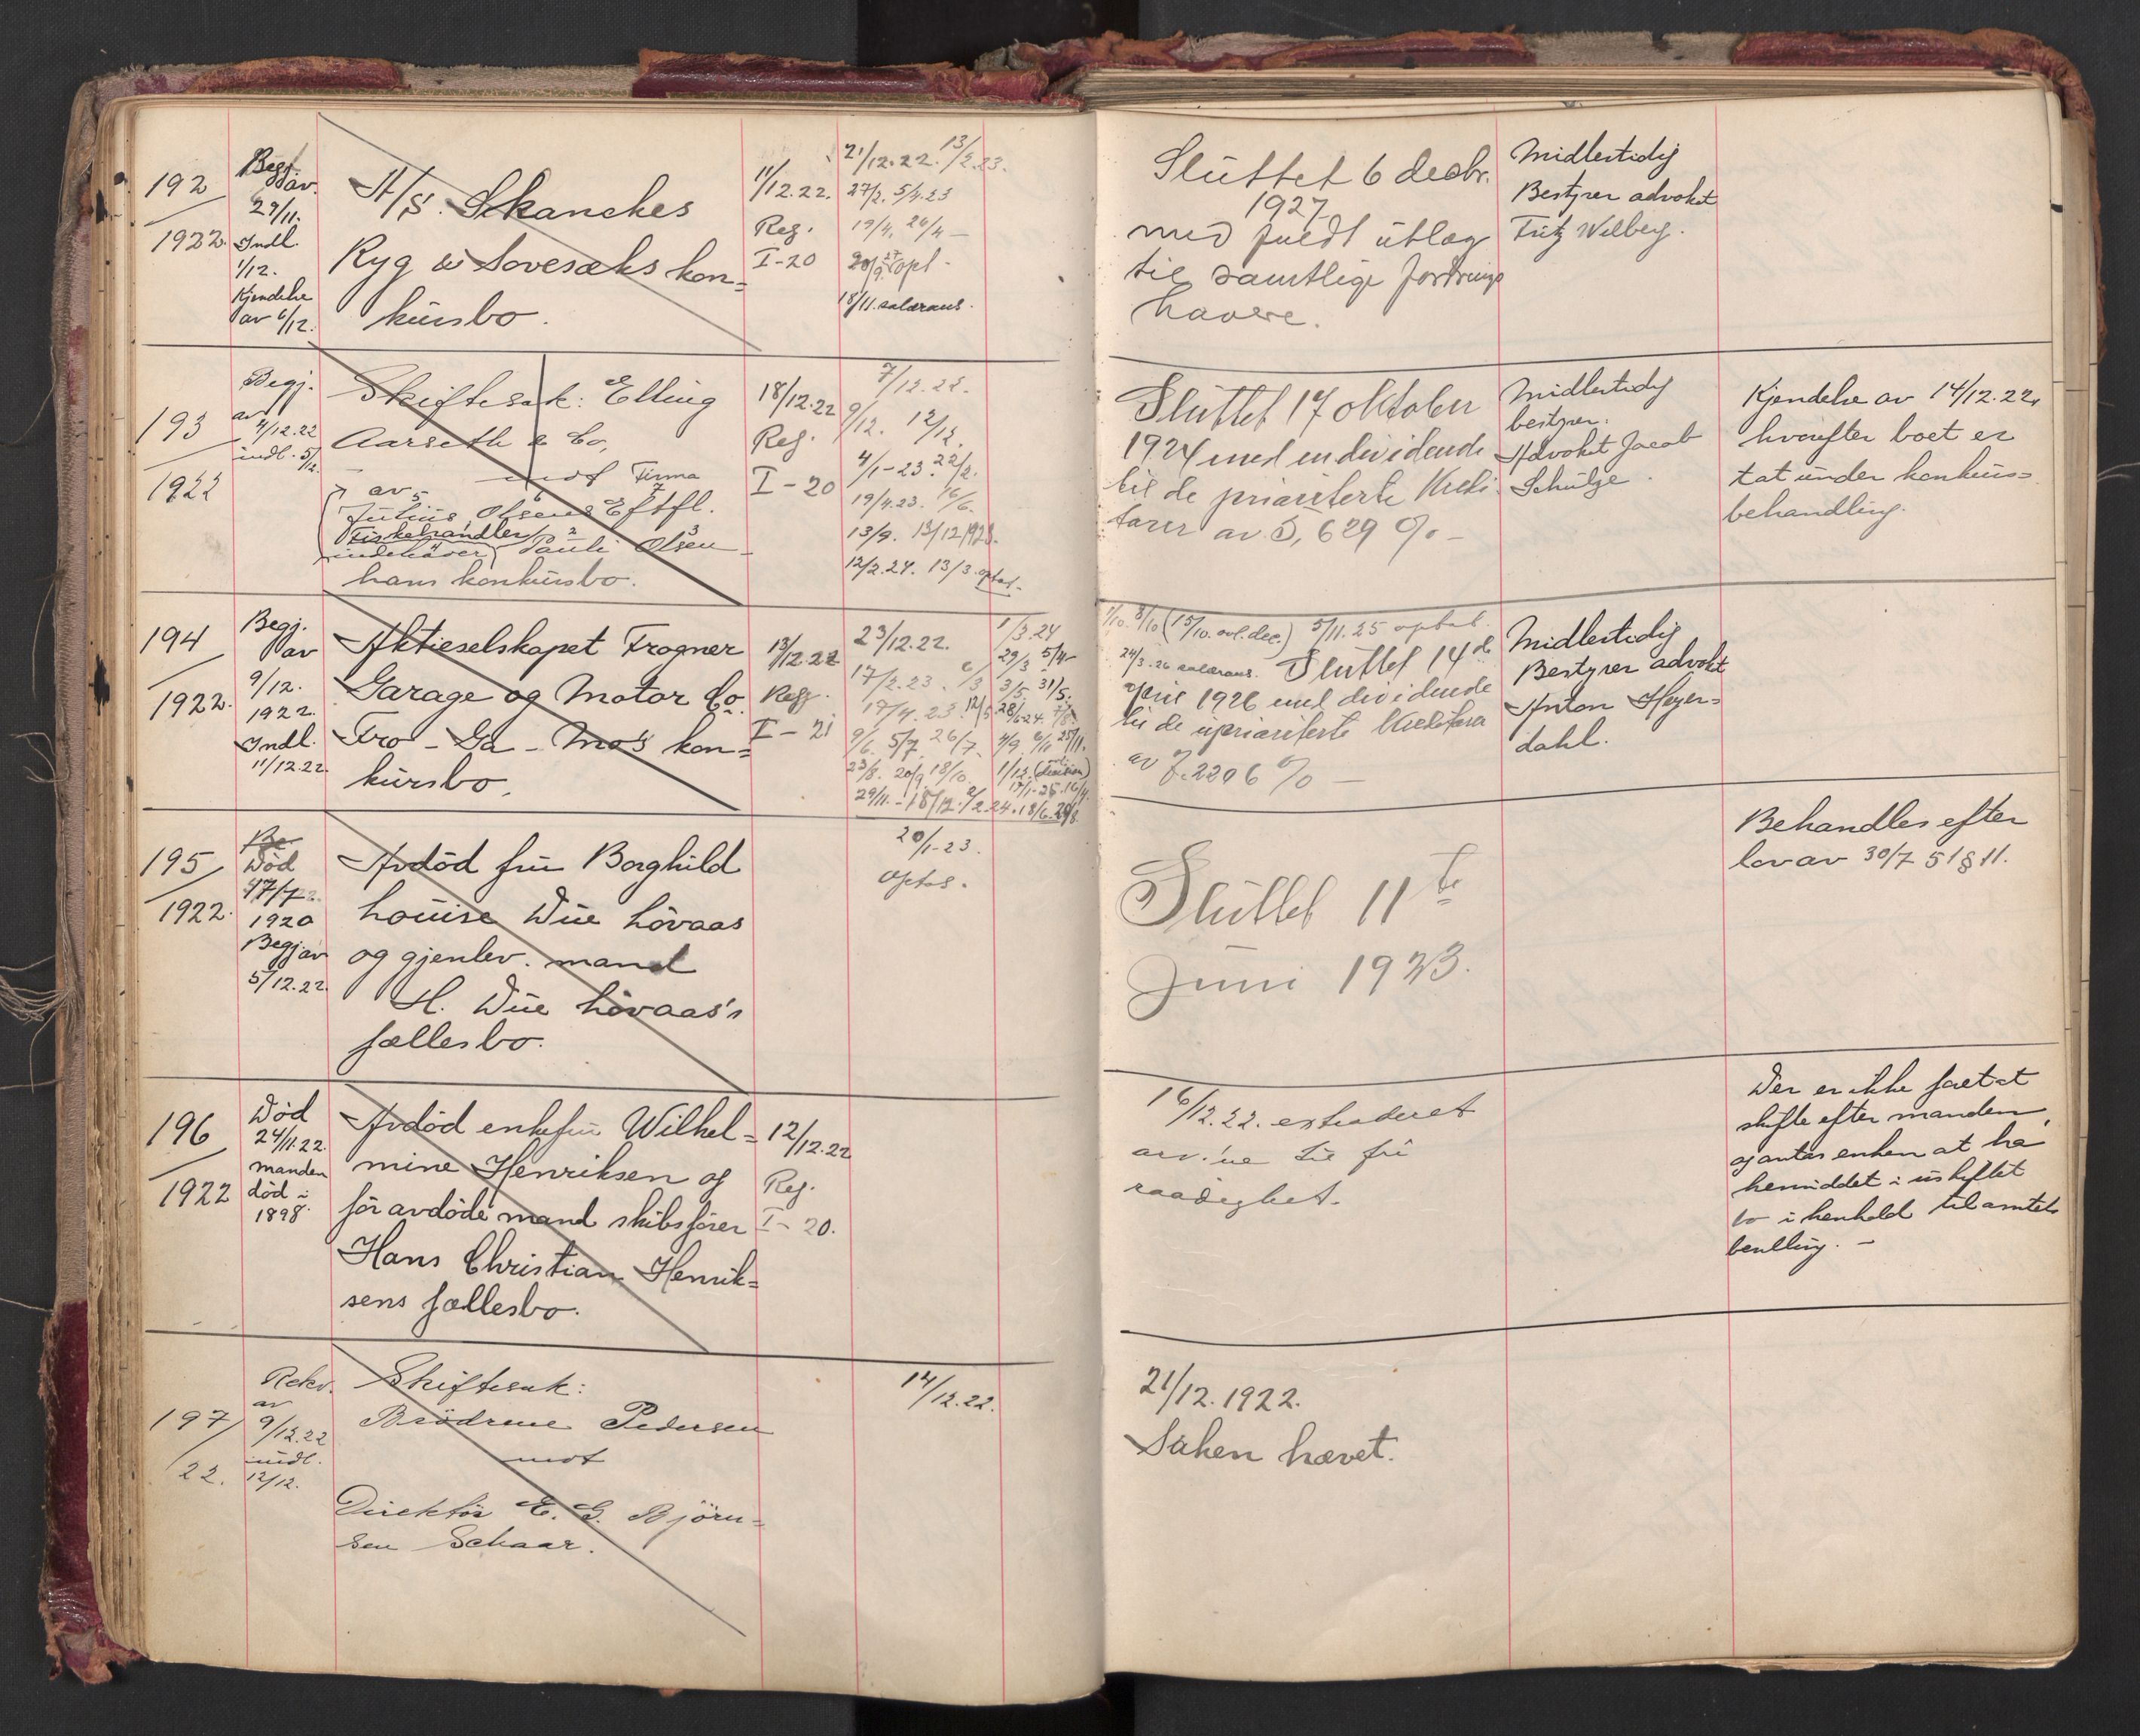 192
1922.
Begj.
av.
29/11.
Indl.
1/12.
Kjendelse
av 6/12.
A/S. Skanckes
Ryg & Sovesæks kon=
kursbo.
11/12.22.
Reg.
I-20
21/12.22. 13/2.23.
27/2. 5/4.23
19/4. 26/4 -
18/11. salæraus.
Sluttet 6 decbr.
1927
med fuldt utlæg
til samtlige fordrings
havere.
Midlertidig
Bestyrer advokat
Fritz Wilberg.
193
1922
Begj.
av
4/12.22
indl. 5/12.
Skiftesak: Elling
Aarseth & Co,
mot Firma
av
Julius Olsens Eftfl.
Fiskehandler
indehaver Pauli Olsen
hans konkursbo.
18/12.22
Reg.
I-20
7/12.22.
9/12. 12/12.
4/1-23. 22/2.
19/4.23. 16/6.
13/9. 13/12 1923.
12/2.24. 13/3. optat.
Sluttet 17 oktober
1924 med en dividende
til de prioriterte Kredi
torer av 5,629 % -
Midlertidig
bestyrer.
Advokat Jacob
Schulze.
Kjendelse av 14/12.22,
hvorefter boet er
tat under konkurs=
behandling.
194
1922.
Begj.
av
9/12.
1922.
Indl.
11/12.22.
Aktieselskapet Frogner
Garage og Motor Co.
Fro-Ga-Mo's kon=
kursbo.
13/12.22
Reg.
I-21
23/12.22.
17/2.23. 6/3
17/4.23. 12/5
9/6. 5/7. 26/7.
23/8. 20/9 18/10.
29/11.-18/12. 2/2.24. 18/6. 20/8
1/3.24
29/3 5/4-
3/5. 31/5.
4/9. 6/11 25/11.
1/10. 8/10 (15/10. avl. dec.) 5/11.25 optat.
24/3.26 salæraus. Sluttet 14de
april 1926 med dividende
til de uprioriterte Kreditorer
av 7.2206 % -
Midlertidig
Bestyrer advokat
Anton Heyer=
dahl.
195
1922.
Død
1920
Begj av
5/12.22.
Avdød fru Borghild
Louise Due Løvaas
og gjenlev. mand
H. Due Løvaas's
fællesbo.
20/1-23.
optat.
Sluttet 11te
Juni 1923.
Behandles efter
lov av 30/7 51 § 11.
196
1922
Død
24/11.22.
manden
død i
1898.
Avdød enkefru Wilhel=
mine Henriksen og
før avdøde mand skibsfører
Hans Christian Henrik=
sens fællesbo.
12/12.22
Reg.
I-20.
16/12.22. extraderet
arv.ne til fri
raadighet.
Der er ikke foretat
skifte efter manden,
og antas enken at ha
hensiddet i uskiftet
bo i henhold til amtets
bevilling. -
197
22.
Rekv.
av
9/12.22
indl.
12/12.
Skiftesak:
Brødrene Pedersen
mot
Direktør E. G. Bjørn=
sen Schaar.
14/12.22.
21/12.1922.
Saken hævet.